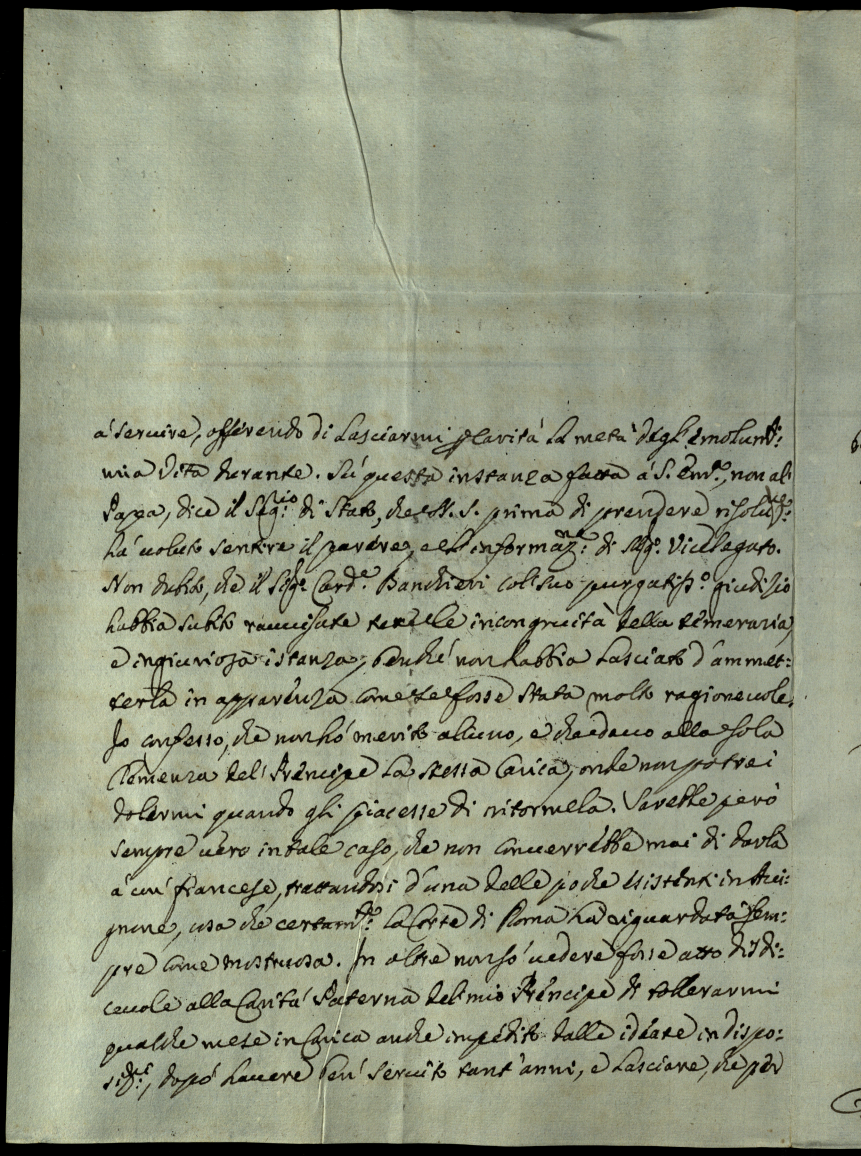 à seruire, offerendo di lasciarmi p carità la metà degl'emolum.ti:
mia vita durante. Sù questa instanza fatta à S. Em.a, non al
Papa, dice il Seg.rio di Stato, che N. S. prima di prendere risoluz.ne:
hà uoluto sentire il parere, e l'informaz.ne: di Mg.r Vicelegato.
Non dubito, che il Sig.r Card.e Banchieri col suo purgatiss.o giudizio
habbia subito rauuisate le incongruità della temeraria,
e ingiuriosa istanza, benche non habbia lasciato d'ammet:
terla in apparenza come se fosse stata molto ragioneuole.
Io confesso, che non hò merito alcuno, e che deuo alla sola
Clemenza del Principe la stessa Carica, onde non potrei
dolermi quando gli piacesse di ritormela. Sarebbe però
sempre uero in tale caso, che non conuerrebbe mai di darla
à un francese, trattandosi d'una delle poche esistenti in Aui:
gnone, cosa che certam.te: la Corte di Roma hà riguardata sem:
pre come mostruosa. In oltre non sò uedere fosse atto disdi:
ceuole alla Carità Paterna del mio Principe di tollerarmi
qualche mese in Carica anche impedito dalle ideate indispo:
siz.ni, dopò hauere ben seruito tant'anni, e lasciare, che per